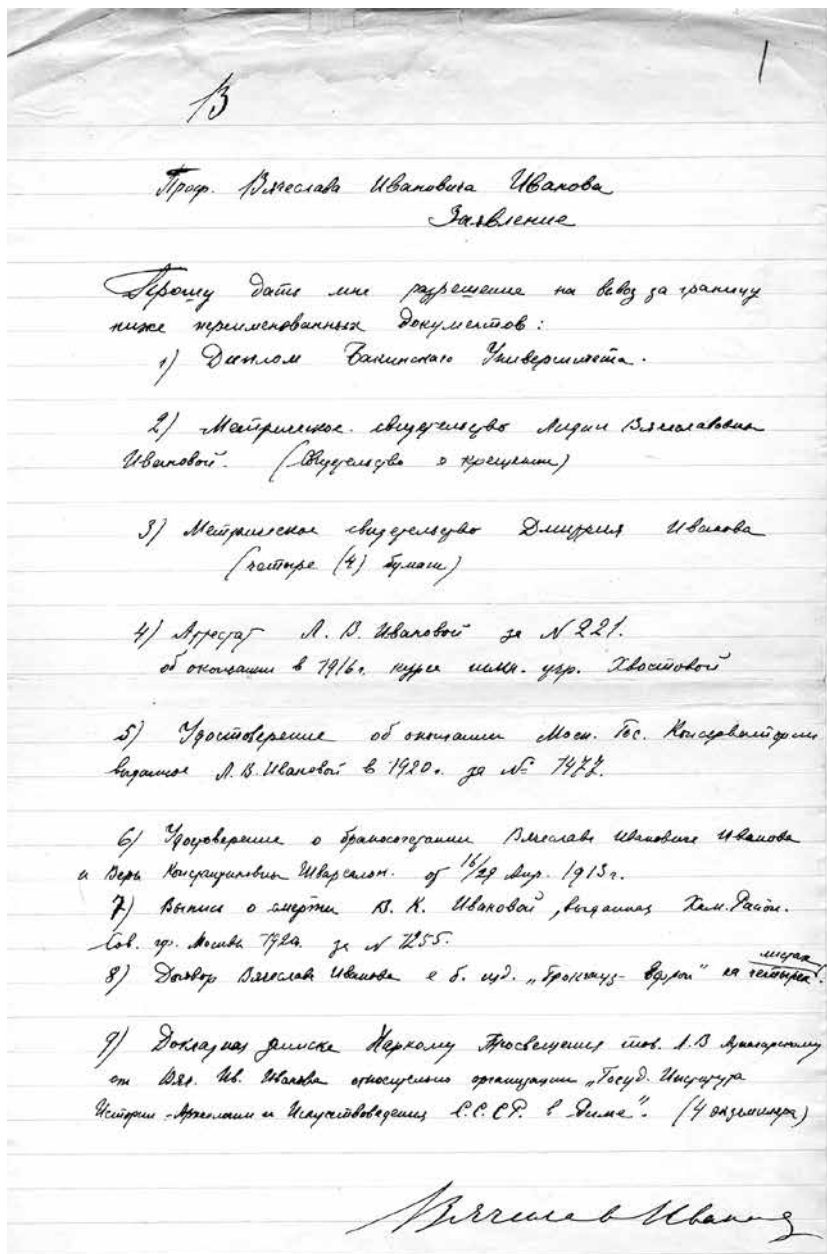 В
1
Проф. Вячеслава Ивановича Иванова
Заявление
Прошу дать мне разрешение на вывоз за границу
ниже переименованных документов:
1) Диплом Бакинскаго Университета.
2) Метрическое свидетельство Лидии Вячеславовны
Ивановой. (Свидетельство о крещении)
3) Метрическое свидетельство Димитрия Иванова
(четыре (4) бумаги)
4) Аттестат Л. В. Ивановой за N 221.
об окончании в 1916 г. курса гимн. учр. Хвостовой
5) Удостоверение об окончании Моск. Гос. Консерватории
выданное Л. В. Ивановой в 1920 г. за № 1477.
6) Удостоверение о бракосочетании Вячеслава Ивановича Иванова
и Веры Константиновны Шварсалон. от 16/29 Апр. 1913 г.
7) Выпись о смерти В. К. Ивановой, выданная Хам. Район.
Сов. гор. Москвы 1920. за N 1255.
8) Договор Вячеслава Иванова с б. изд. „Брокгауз-Ефрон" на четырех листах.
9) Докладная записка Наркому Просвещения тов. А. В Луначарскому
от Вяч. Ив. Иванова относительно организации „Госуд. Института
Истории - Археологии и Искусствоведения С.С.С.Р. в Риме". (4 экземпляра)
Вячеслав Иванов